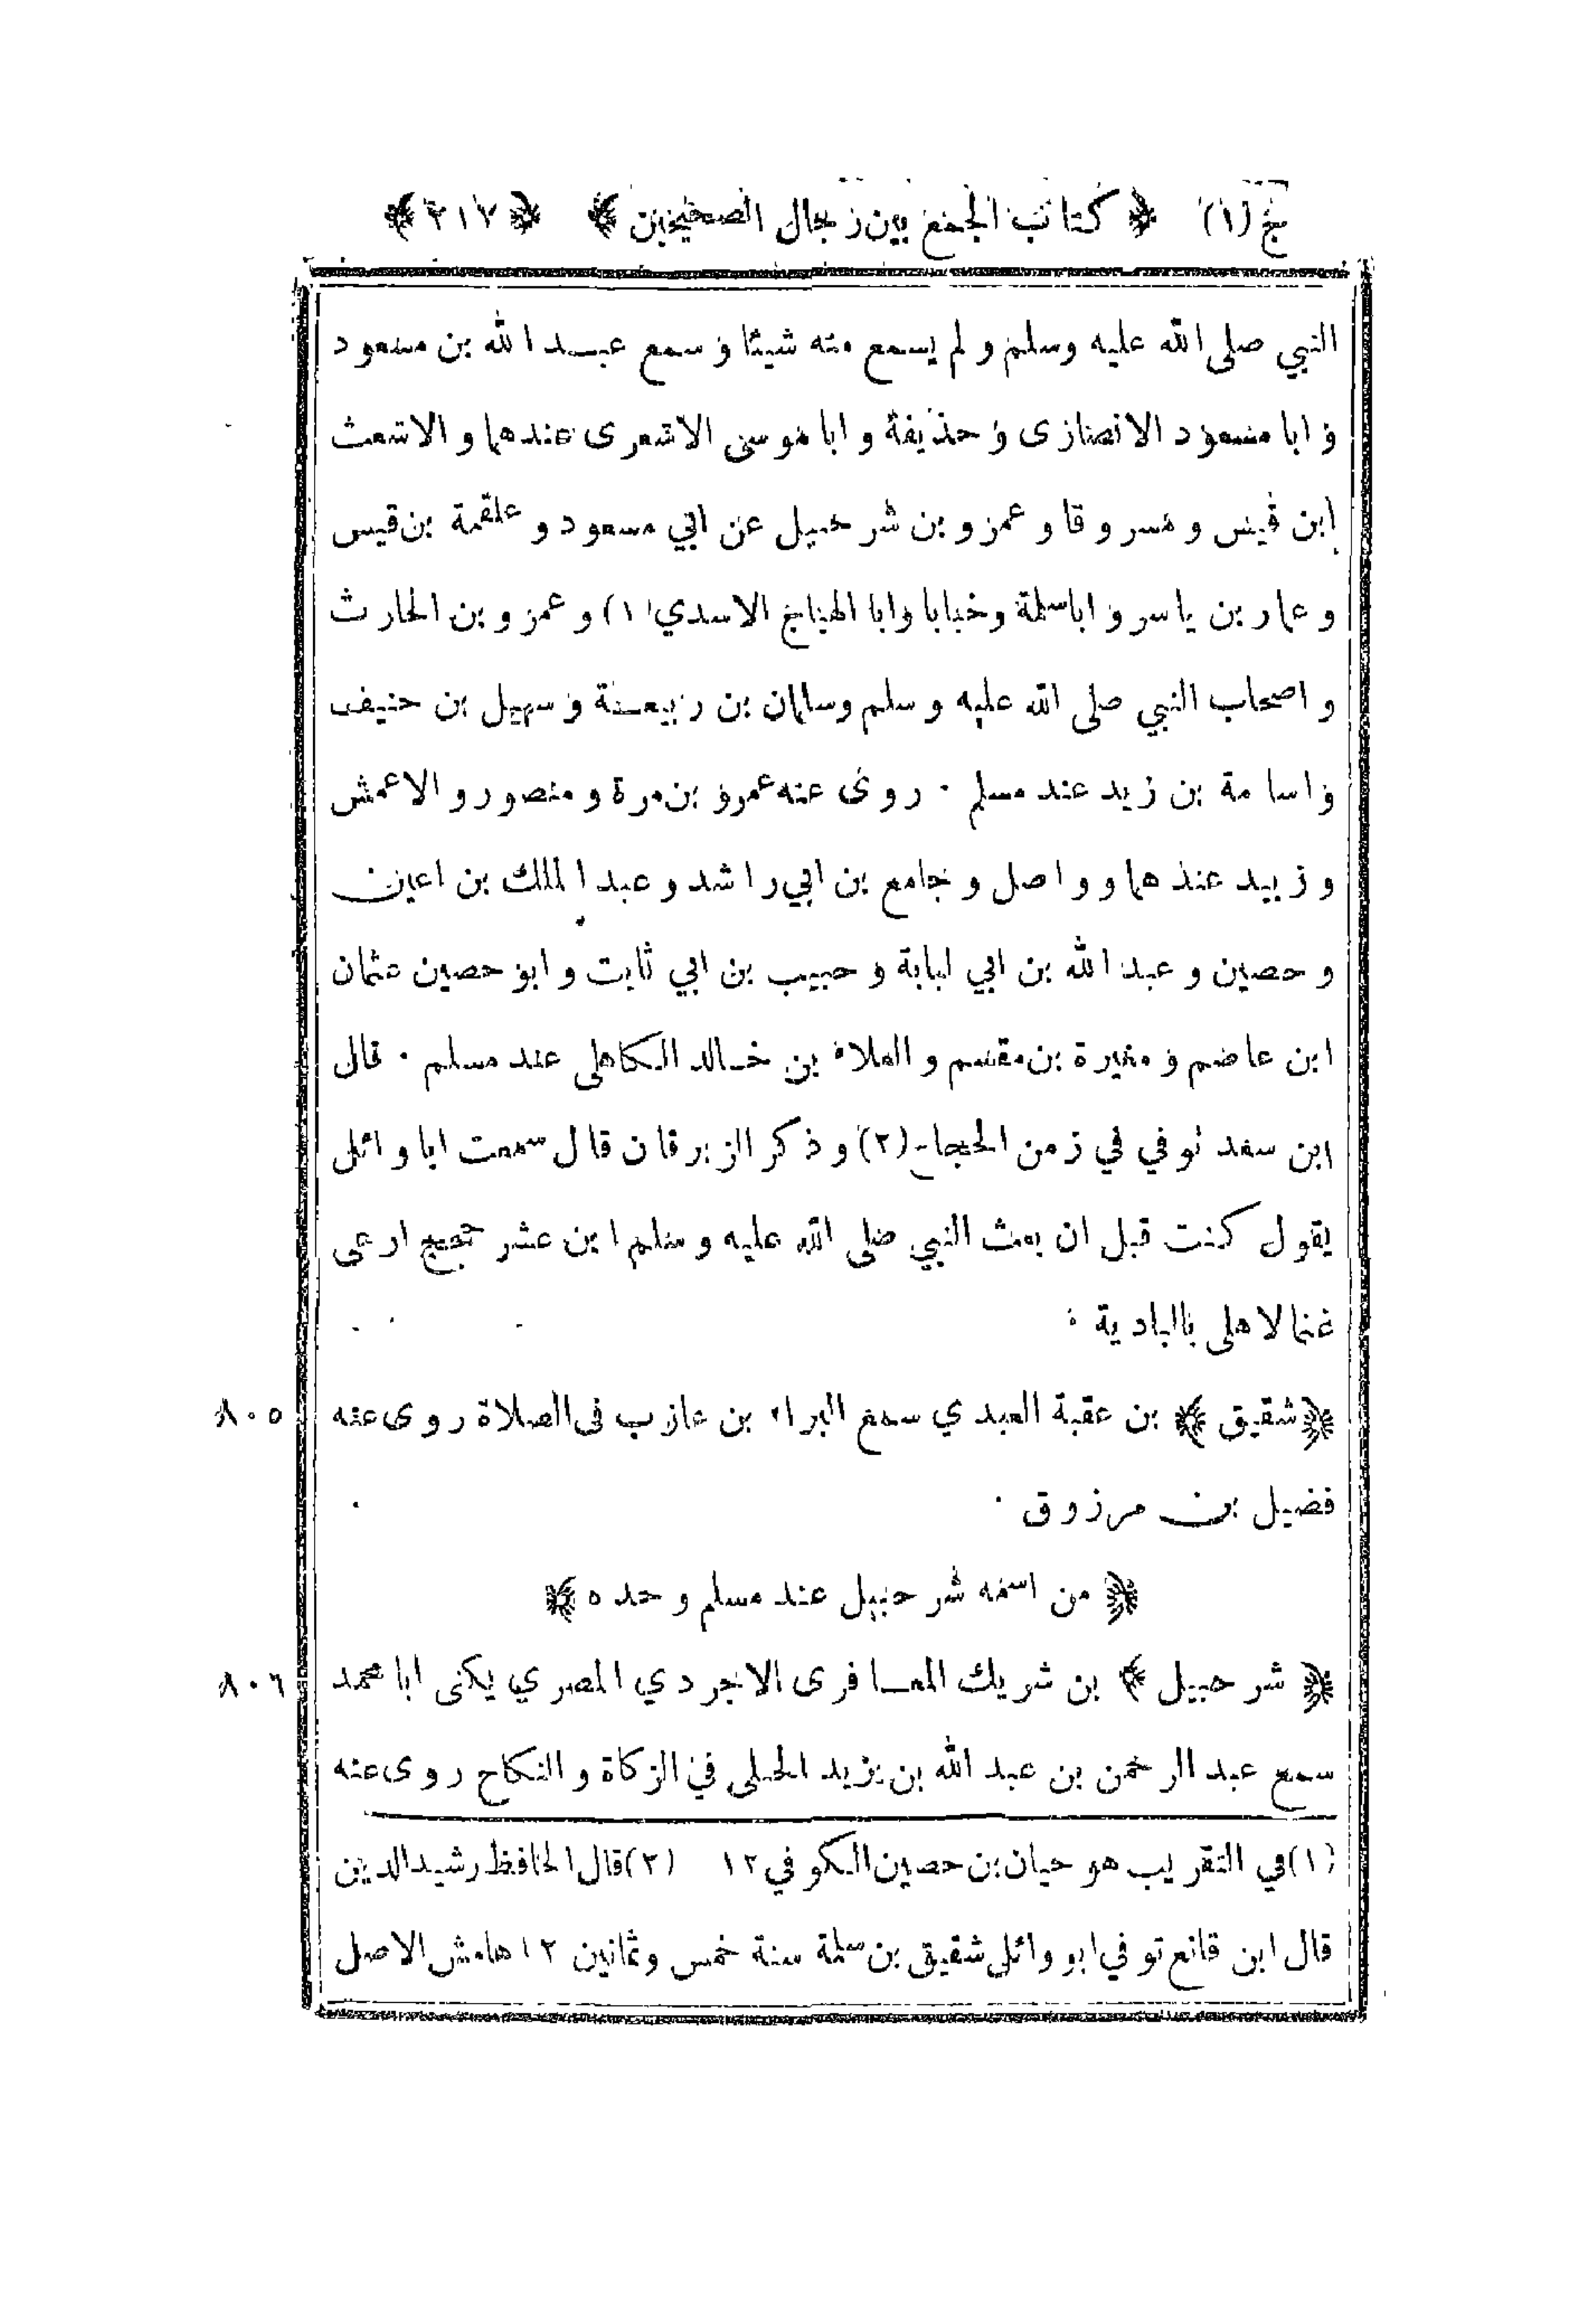 ج (١) ﴿ كتاب الجمع بين رجال الصحيحين ﴾ ﴿ ٢١٧ ﴾
النبي صلى الله عليه وسلم و لم يسمع منه شيئا و سمع عبد الله بن مسعود
و ابا مسعود الانصارى و حذيفة و ابا موسى الاشعرى عندهما و الاشعث
ابن قيس و مسروقا و عمرو بن شرحبيل عن ابي مسعود و علقمة بن قيس
و عمار بن ياسر و اباسلمة و خبابا و ابا الهياج الاسدي (١) و عمرو بن الحارث
و اصحاب النبي صلى الله عليه و سلم وسلمان بن ربيعة و سهيل بن حنيف
و اسامة بن زيد عند مسلم . روى عنه عمرو بن مرة و منصور و الاعمش
و زبيد عندهما و واصل و جامع بن ابي راشد و عبد الملك بن اعين
و حصين و عبد الله بن ابي لبابة و حبيب بن ابي ثابت و ابو حصين عثمان
ابن عاصم و مغيرة بن مقسم و العلاء بن خالد الكاهلى عند مسلم . قال
ابن سعد توفي في زمن الحجاج (٢) و ذكر الزبرقان قال سمعت ابا وائل
يقول كنت قبل ان بعث النبي صلى الله عليه و سلم ابن عشر حجج ارعى
غنما لاهلى بالبادية .
﴿ شقيق ﴾ بن عقبة العبدي سمع البراء بن عازب فى الصلاة روى عنه ٨٠٥
فضيل بن مرزوق .
﴿ من اسمه شرحبيل عند مسلم وحده ﴾
﴿ شرحبيل ﴾ بن شريك المعافرى الاجردي المصري يكنى ابا محمد ٨٠٦
سمع عبد الرحمن بن عبد الله بن يزيد الحبلى في الزكاة و النكاح روى عنه
(١) في التقريب هو حيان بن حصين الكوفي ١٢ (٢) قال الحافظ رشيد الدين
قال ابن قانع توفي ابو وائل شقيق بن سلمة سنة خمس وثمانين ١٢ هامش الاصل